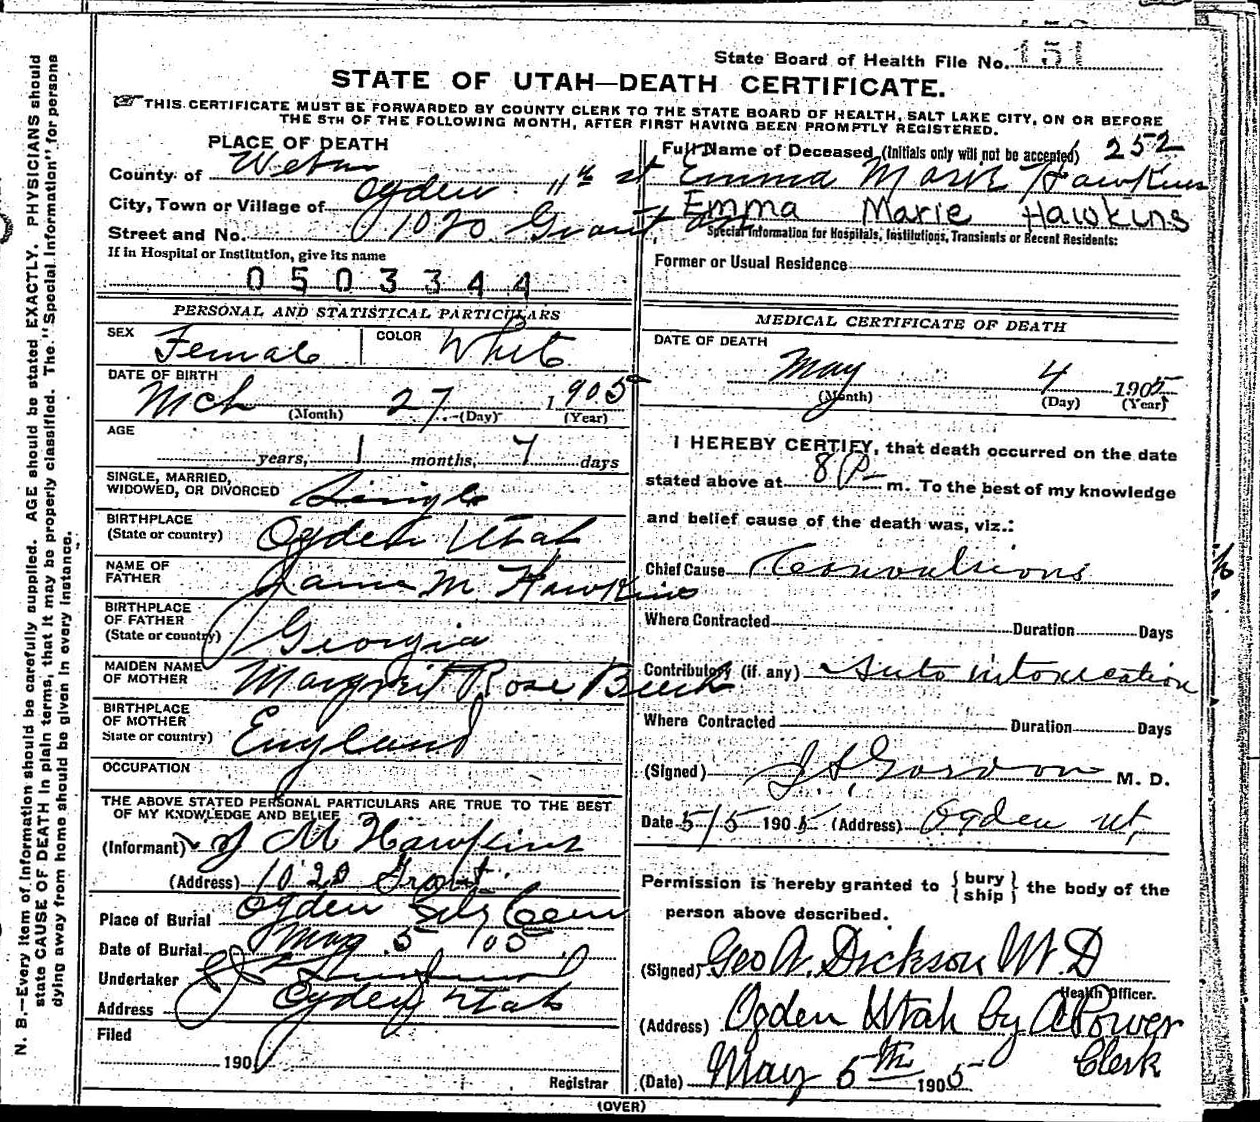 State Board of Health File No. 151
STATE OF UTAH—DEATH CERTIFICATE.
THIS CERTIFICATE MUST BE FORWARDED BY COUNTY CLERK TO THE STATE BOARD OF HEALTH, SALT LAKE CITY, ON OR BEFORE
THE 5TH OF THE FOLLOWING MONTH, AFTER FIRST HAVING BEEN PROMPTLY REGISTERED.
PLACE OF DEATH
County of Weber
City, Town or Village of Ogden 11th st
Street and No. 1020 Grant
If in Hospital or Institution, give its name
0503344
Full Name of Deceased (Initials only will not be accepted) 252
Emma Marie Hawkins
Emma Marie Hawkins
Special Information for Hospitals, Institutions, Transients or Recent Residents:
Former or Usual Residence
PERSONAL AND STATISTICAL PARTICULARS
SEX Female COLOR White
DATE OF BIRTH
Mch 27 1905
(Month) (Day) (Year)
AGE
years, 1 months, 7 days
SINGLE, MARRIED,
WIDOWED, OR DIVORCED Single
BIRTHPLACE
(State or country) Ogden Utah
NAME OF
FATHER James M. Hawkins
BIRTHPLACE
OF FATHER
(State or country) Georgia
MAIDEN NAME
OF MOTHER Margreit Rose
BIRTHPLACE
OF MOTHER
State or country) England
OCCUPATION
THE ABOVE STATED PERSONAL PARTICULARS ARE TRUE TO THE BEST
OF MY KNOWLEDGE AND BELIEF
(Informant) J M Hawkins
(Address) 1020 Grant
Place of Burial Ogden City Cem
Date of Burial May 5 '05
Undertaker
Address Ogden Utah
Filed
190
Registrar
MEDICAL CERTIFICATE OF DEATH
DATE OF DEATH
May 4 1905
(Month) (Day) (Year)
I HEREBY CERTIFY, that death occurred on the date
stated above at 8 P m. To the best of my knowledge
and belief cause of the death was, viz.:
Chief Cause Convulsions
Where Contracted Duration Days
Contributory (if any) Auto intoxication
Where Contracted Duration Days
(Signed) Gordon M. D.
Date 5/5 1905 (Address) Ogden Ut,
Permission is hereby granted to { bury
ship } the body of the
person above described.
(Signed) Geo A. Dickson M.D
Health Officer.
(Address) Ogden Utah by A Power
Clerk
(Date) May 5th 1905
(OVER)
N. B.—Every item of information should be carefully supplied. AGE should be stated EXACTLY. PHYSICIANS should
state CAUSE OF DEATH in plain terms, that it may be properly classified. The "Special Information" for persons
dying away from home should be given in every instance.